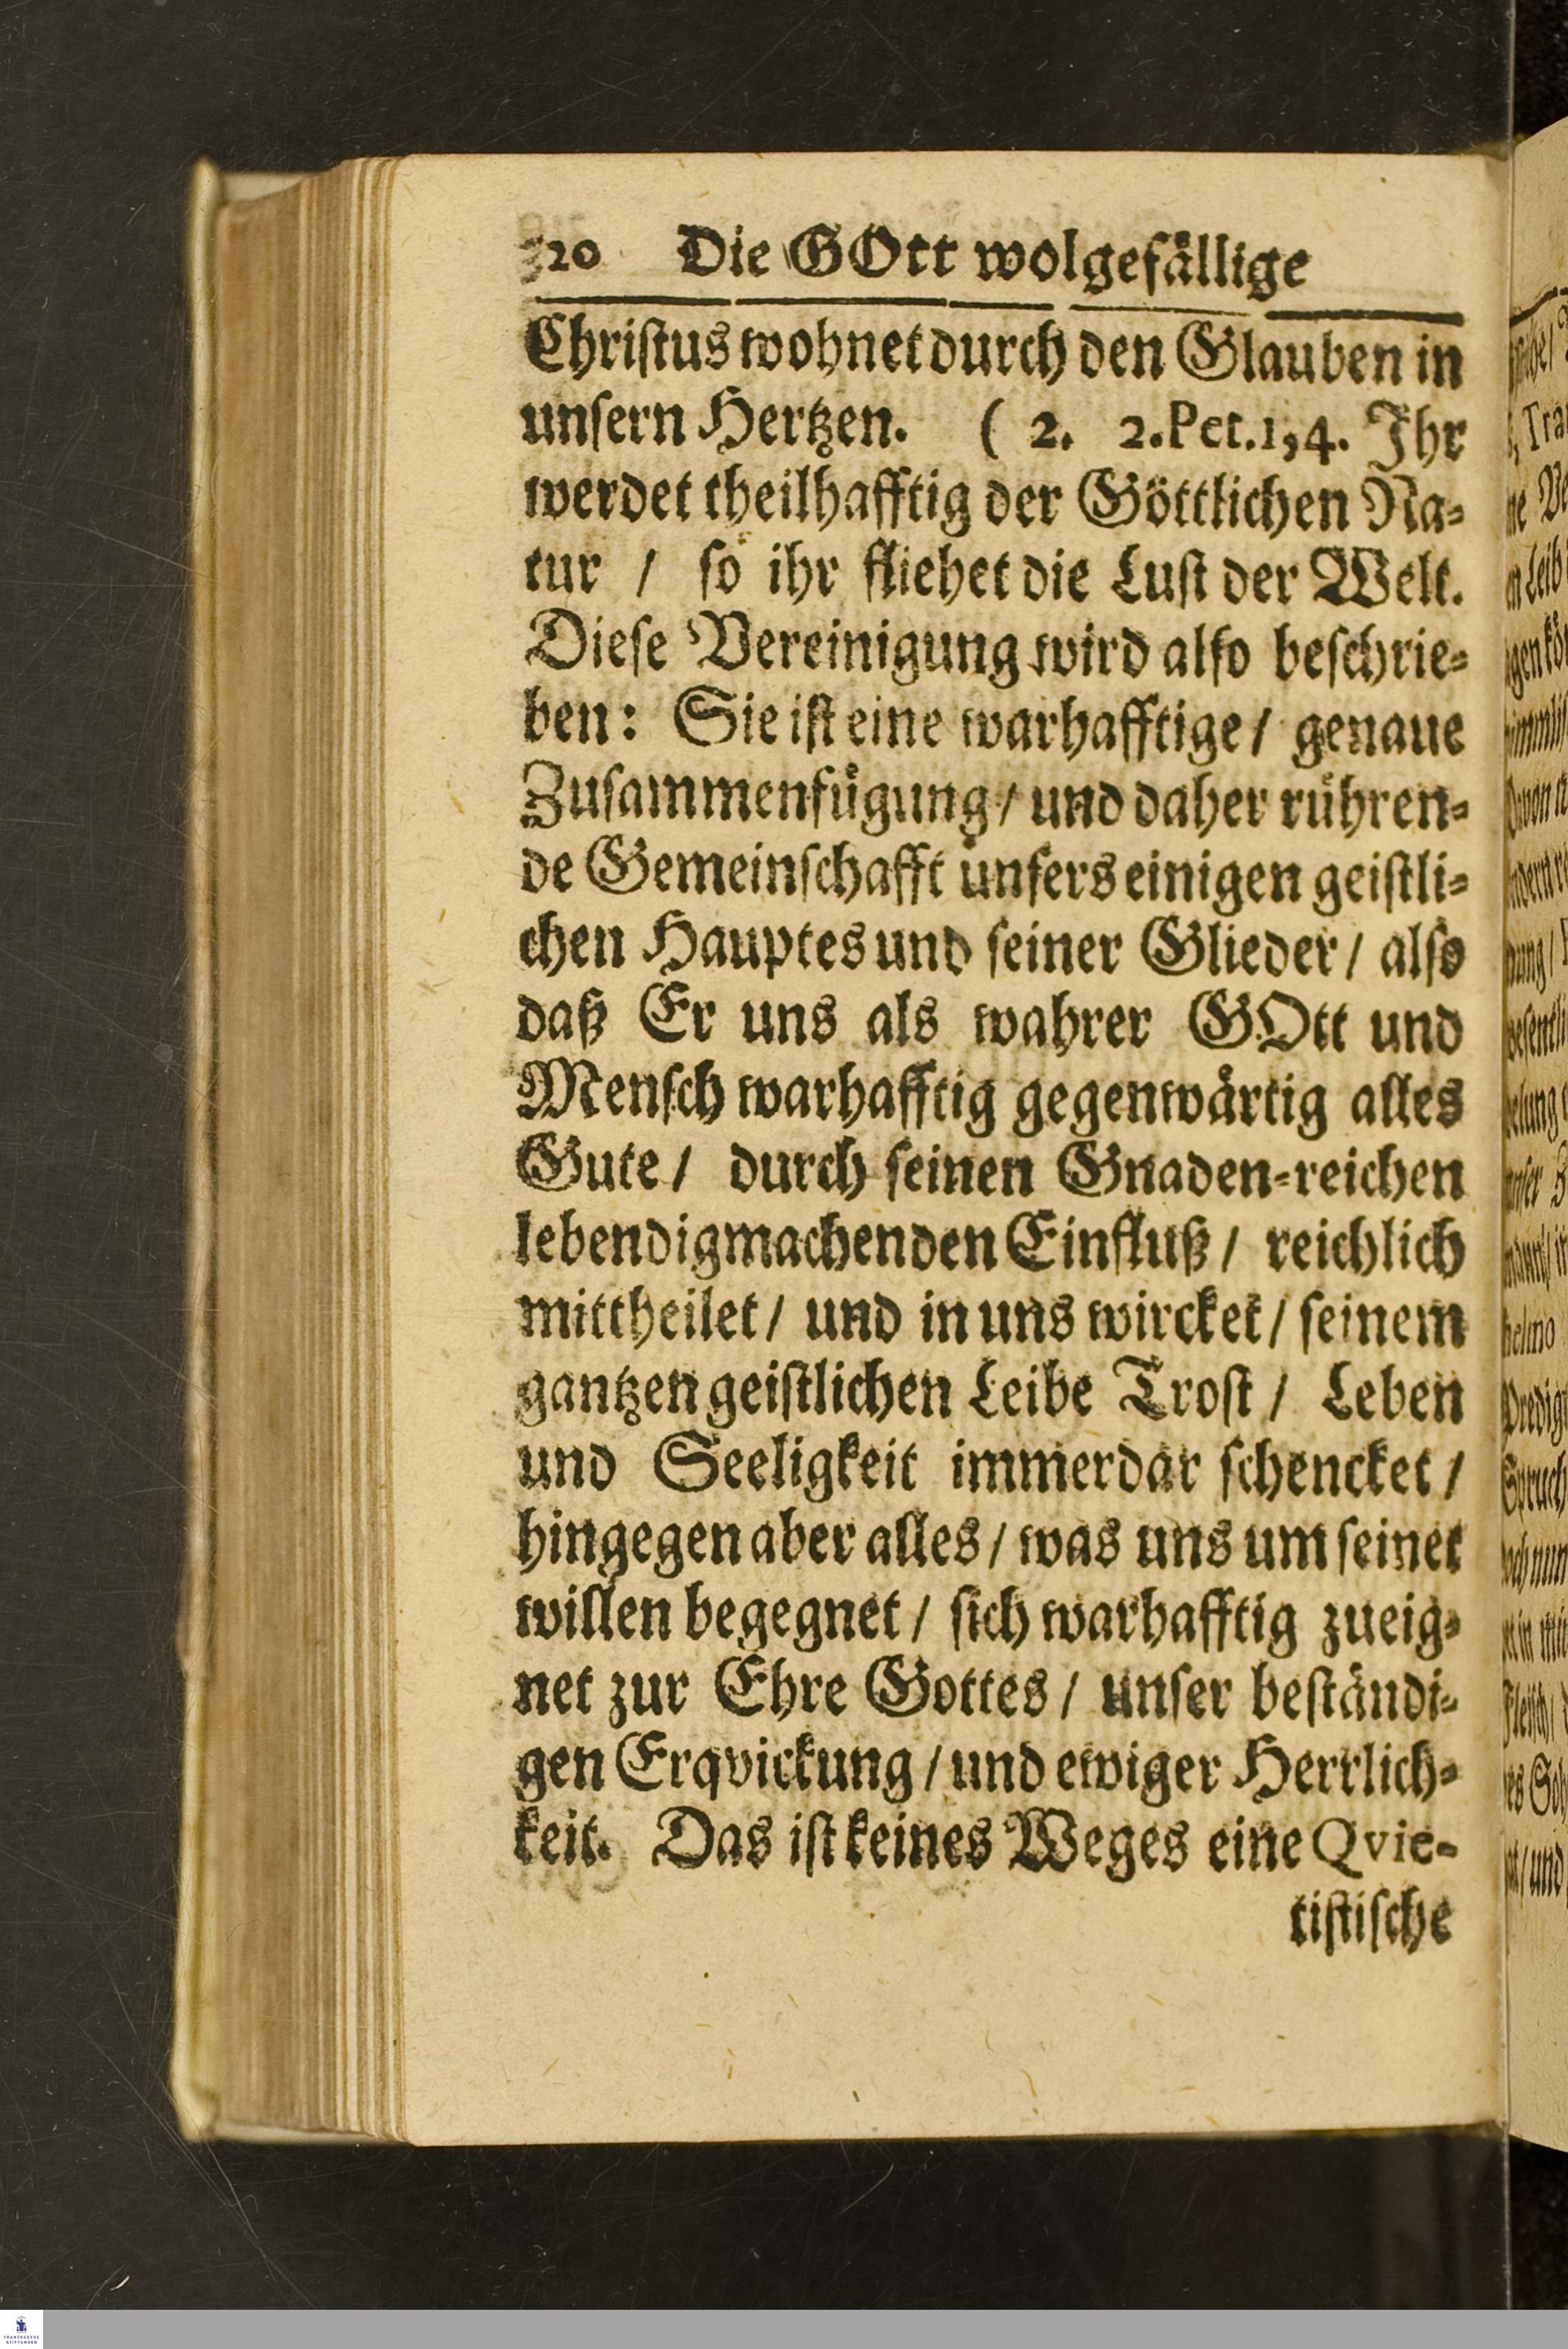 320 Die GOtt wolgefällige
Chriſtus wohnet durch den Glauben in
unſern Hertzen. ( 2. 2.Pet.1,4. Ihr
werdet theilhafftig der Göttlichen Na-
tur / ſo ihr fliehet die Luſt der Welt.
Dieſe Vereinigung wird alſo beſchrie-
ben: Sie iſt eine warhafftige / genaue
Zuſammenfügung / und daher rühren-
de Gemeinſchafft unſers einigen geiſtli-
chen Hauptes und ſeiner Glieder / alſo
daß Er uns als wahrer GOtt und
Menſch warhafftig gegenwärtig alles
Gute / durch ſeinen Gnaden-reichen
lebendigmachenden Einfluß / reichlich
mittheilet / und in uns wircket / ſeinem
gantzen geiſtlichen Leibe Troſt / Leben
und Seeligkeit immerdar ſchencket /
hingegen aber alles / was uns um ſeinet
willen begegnet / ſich warhafftig zueig-
net zur Ehre Gottes / unſer beſtändi-
gen Erqvickung / und ewiger Herrlich-
keit. Das iſt keines Weges eine Qvie-
tiſtiſche
FRANCKESCHE
STIFTUNGEN